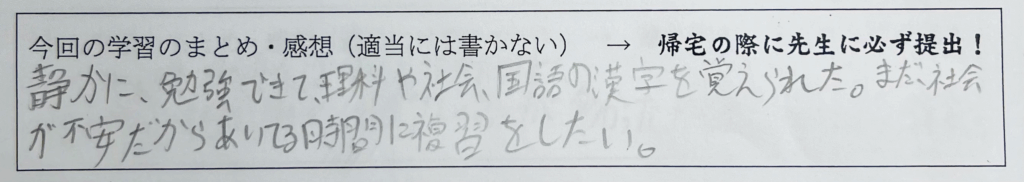 今回の学習のまとめ・感想（適当には書かない）　→　帰宅の際に先生に必ず提出！
静かに、勉強できて、理科や社会、国語の漢字を覚えられた。まだ、社会
が不安だからあいてる時間に複習をしたい。